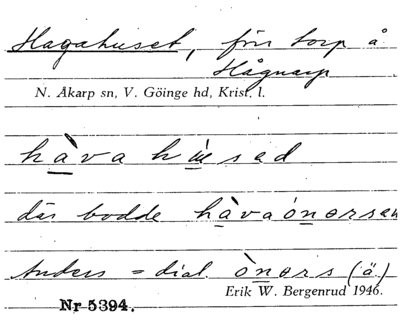 Hagahuset, förr torp å
Hågnarp
N. Åkarp sn, V. Göinge hd, Krist. l.
hàva hùsed
där bodde hàvaónərsen
Anders = dial. ònərs (ä)
Erik W. Bergenrud 1946.
Nr 5394.